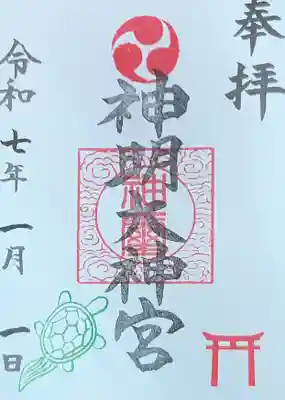 奉拝
神明大神宮
令和七年一月一日